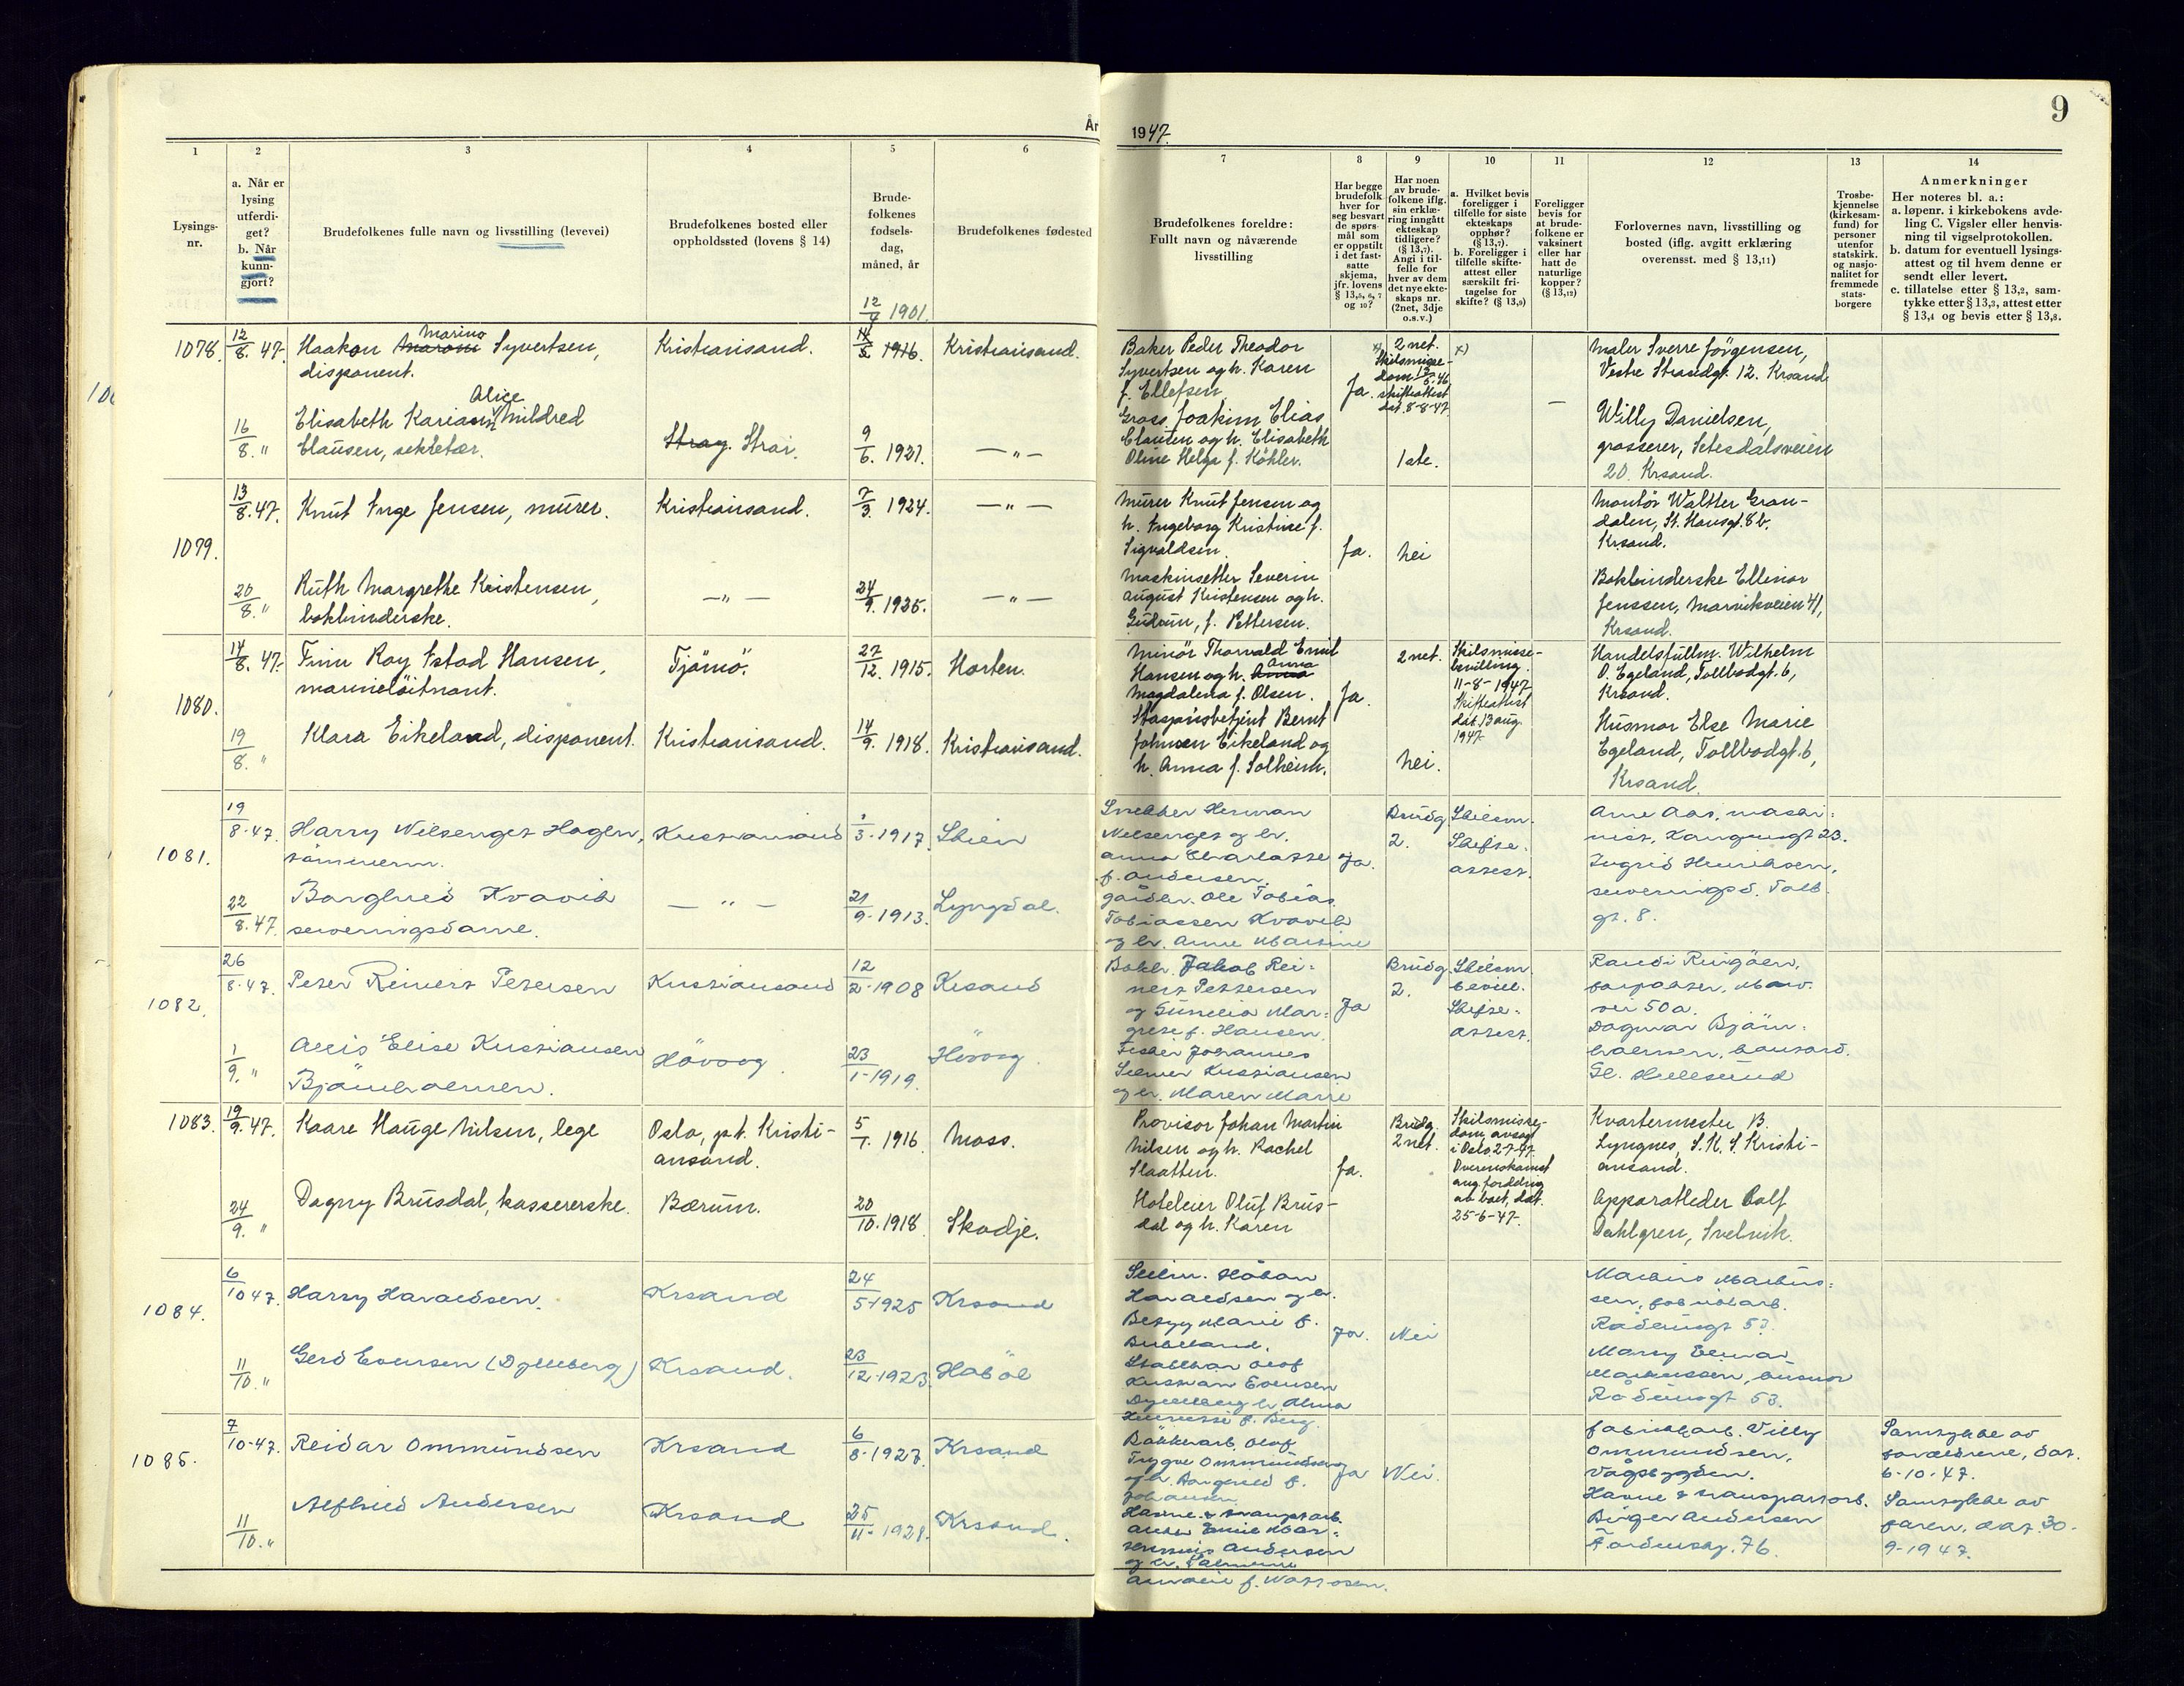 År
1947.
9
1
2
3
4
5
6
7
8
9
10
11
12
13
14
Lysings-
nr.
a. Når er
lysing
utferdi-
get?
b. Når
kunn-
gjort?
Brudefolkenes fulle navn og livsstilling (levevei)
Brudefolkenes bosted eller
oppholdssted (lovens § 14)
Brude-
folkenes
fødsels-
dag,
måned, år
Brudefolkenes fødested
Brudefolkenes foreldre:
Fullt navn og nåværende
livsstilling
Har begge
brudefolk
hver for
seg besvart
de spørs-
mål som
er oppstilt
i det fast-
satte
skjema,
jfr. lovens
§ 13,5, 6, 7
og 10?
Har noen
av brude-
folkene iflg.
sin erklæ-
ring inngått
ekteskap
tidligere?
(§ 13,7).
Angi i til-
felle for
hver av dem
det nye ekte-
skaps nr.
(2net, 3dje
o.s.v.)
a. Hvilket bevis
foreligger i
tilfelle for siste
ekteskaps
opphør?
(§ 13,7)
b. Foreligger i
tilfelle skifte-
attest eller
særskilt fri-
tagelse for
skifte? (§ 13,9)
Foreligger
bevis for
at brude-
folkene er
vaksinert
eller har
hatt de
naturlige
kopper?
(§ 13,12)
Forlovernes navn, livsstilling og
bosted (iflg. avgitt erklæring
overensst. med § 13,11)
Trosbe-
kjennelse
(kirkesam-
fund) for
personer
utenfor
statskirk.
og nasjo-
nalitet for
fremmede
stats-
borgere
Anmerkninger
Her noteres bl. a.:
a. løpenr. i kirkebokens avde-
ling C. Vigsler eller henvis-
ning til vigselprotokollen.
b. datum for eventuell lysings-
attest og til hvem denne er
sendt eller levert.
c. tillatelse etter § 13,2, sam-
tykke etter § 13,3, attest etter
§ 13,4 og bevis etter § 13,8.
1078.
12/8. 47.
Marino
Haakon Syvertsen,
disponent.
Kristiansand.
12/4 1901.
1916.
Kristiansand.
Baker Peder Theodor
Syvertsen og h. Karen
f. Ellefsen
Ja.
x) 2 net.
Skilsmisse-
dom 13/5.46
skifteattest
dat. 8-8-47
x)
Maler Sverre Jörgensen,
Vestre Strandgt. 12. Krsand
16/8. "
Alice
Elisabeth Mildred
Clausen, sekretær.
Stray. Strai.
9/6. 1921.
— " —
Gross. Joakim Elias
Clausen og h. Elisabeth
Oline Helga f. Köhler.
1ste.
—
Willy Danielsen,
grosserer, Setesdalsveien
20. Krsand.
1079.
13/8. 47.
Knut Inge Jensen, murer.
Kristiansand.
7/3. 1924.
— " —
Murer Knut Jensen og
h. Ingeborg Kristine f.
Sigvaldsen.
Ja.
Nei
Montör Walther Gran-
dalen, St. Hansgt. 8b,
Krsand.
20/8. "
Ruth Margrethe Kristensen,
bokbinderske.
— " —
24/9. 1925.
— " —
Maskinsetter Severin
August Kristensen og h.
Gudrun, f. Pettersen.
Bokbinderske Ellinor
Jenssen, Marvikveien 41,
Krsand.
1080.
14/8. 47.
Finn Roy Ystad Hansen,
marinelöitnant.
Tjömö.
27/12. 1915.
Horten.
Minör Thorvald Emil
Hansen og h. Anna
Magdalena f. Olsen.
Ja.
2 net.
Skilsmisse-
bevilling.
11-8-1947
Skifteattest
dat. 13 aug.
1947
Handelsfullm. Wilhelm
O. Egeland, Tollbodgt. 6,
Krsand.
19/8. "
Klara Eikeland, disponent.
Kristiansand.
14/9. 1918.
Kristiansand.
Bernt
Johnsen Eikeland og
h. Anna f. Solheim.
Nei.
Husmor Else Marie
Egeland, Tollbodgt. 6,
Krsand.
1081.
19/8.47.
Harry Hagen,
Kristiansand
3-1917.
Skien
Snekker Herman
og h.
Anna Charlotte
f. Andersen.
Ja.
Brudg
2.
Skilsm.
Skifte-
attest.
Arne Aas,
22/8.47.
Borghild Kvavik
serveringsdame.
— " —
21/9-1913.
Lyngdal.
Ole Tobias
Tobiassen Kvavik
og h. Anne Martine
Ingrid Henriksen,
serveringsd. Tolb.
gt. 8.
1082.
26/8.47.
Peter Reinert Petersen
Kristiansand
12/2-1908
Krsand
Jakob Rei-
nert Pettersen
og Gunelia Mar-
grete f. Hansen
Ja
Brudg.
2.
Skilsm.
bevill.
Skifte-
attest.
Randi
vei 50a.
1/9. "
Elise Kristiansen
Hövåg
23/1-1919.
Hövåg
Fisker Johannes
Selmer Kristiansen
og h. Maren Marie
Dagmar
1083.
19/9. 47.
Kaare Hauge Nilsen, lege
Oslo, p.t. Kristi-
ansand.
5/7. 1916
Moss.
Provisor Johan Martin
Nilsen og h. Rachel
Slaatten.
Ja.
Brudg.
2 net.
Skilsmisse-
dom, avsagt
i Oslo 2-7-47.
Overenskomst
ang. fordeling
av boet, dat.
25-6-47.
Kvartermester B.
Lyngnes, S.K.S. Kristi-
ansand.
24/9. "
Dagny Brusdal, kassererske.
Bærum.
20/10. 1918
Skodje.
Hoteleier Oluf Brus-
dal og h. Karen
Apparatleder Ralf
Dahlgren, Svelvik.
1084.
6/10 47.
Harry Haraldsen.
Krsand
24/5-1925
Krsand
Haraldsen og h.
Marie f.
Ja.
Nei
Markus Markus-
sen, fabrikarb.
Rådhusgt 53.
11/10. "
Gerd Evensen (Dyllberg)
Krsand.
23/12-1923.
Hobøl
Olof
Kristian Evensen
h. Alma
f. Berg.
husmor
Rådhusgt 53.
1085.
7/10-47.
Reidar Ommundsen
Krsand
6/8-1927
Krsand
Olof
Trygve Ommundsen
og h. f.
Johansen
Ja
Nei.
Fabrikarb. Villy
Ommundsen,
Vågsbygden.
Samtykke av
foreldrene, dat.
6-10-47.
11/10. "
Alfhild Andersen
Krsand
25/11-1928.
Krsand.
Havne & transportarb.
Andersen
og h.
Havne & transportarb.
Birger Andersen
76.
Samtykke av
faren, dat. 30-
9-1947.